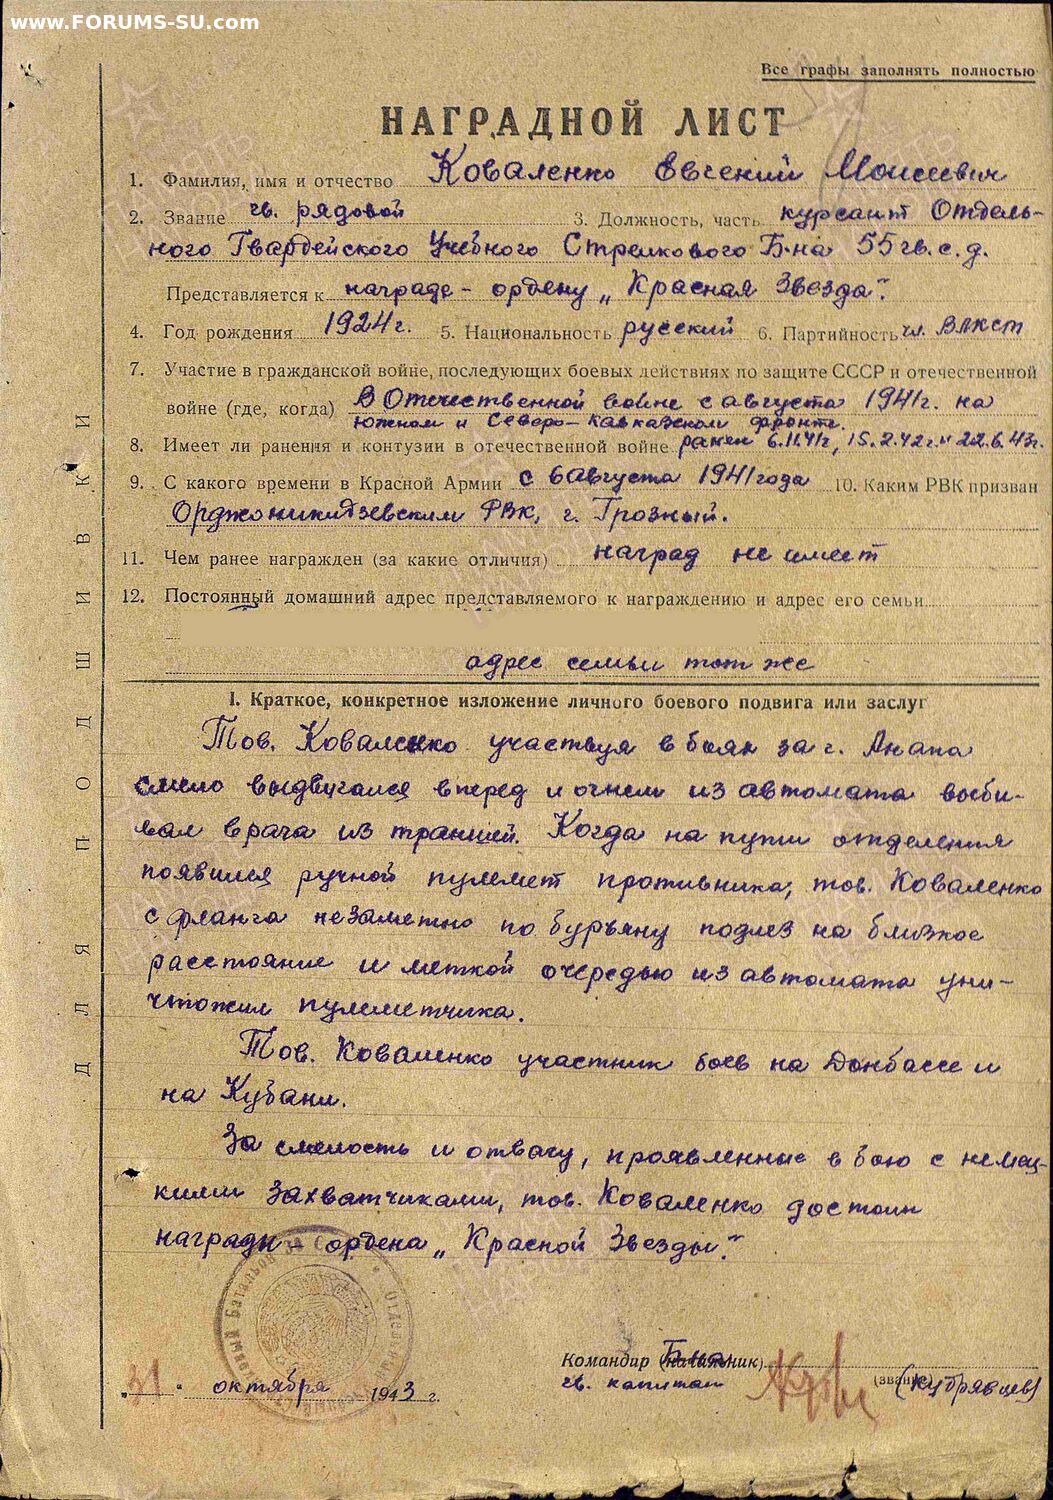 www.FORUMS-SU.com
Все графы заполнять полностью
НАГРАДНОЙ ЛИСТ
1. Фамилия, имя и отчество Коваленко Евгений Моисеевич
2. Звание гв. рядовой 3. Должность, часть курсант Отдель-
ного Гвардейского Учебного Стрелкового Б-на 55 гв. с. д.
Представляется к награде - ордену „Красная Звезда".
4. Год рождения 1924 г. 5. Национальность русский 6. Партийность чл. ВЛКСМ
7. Участие в гражданской войне, последующих боевых действиях по защите СССР и отечественной
войне (где, когда) В Отечественной войне с августа 1941 г. на
Южном и Северо-Кавказском фронте.
8. Имеет ли ранения и контузии в отечественной войне ранен 6.11.41 г, 15.2.42 г. и 22.6.43 г.
9. С какого времени в Красной Армии с 6 августа 1941 года 10. Каким РВК призван
Орджоникидзевским РВК, г. Грозный.
11. Чем ранее награжден (за какие отличия) наград не имеет
12. Постоянный домашний адрес представляемого к награждению и адрес его семьи
адрес семьи тот же
I. Краткое, конкретное изложение личного боевого подвига или заслуг
Тов. Коваленко участвуя в боях за г. Анапа
смело выдвигался вперед и огнем из автомата выби-
вал врага из траншей. Когда на пути отделения
появился ручной пулемет противника, тов. Коваленко
с фланга незаметно по бурьяну подлез на близкое
расстояние и меткой очередью из автомата уни-
чтожил пулеметчика.
Тов. Коваленко участник боев на Донбассе и
на Кубани.
За смелость и отвагу, проявленные в бою с немец-
кими захватчиками, тов. Коваленко достоин
награды ордена „Красной Звезды".
Командир (начальник) Б-на
гв. капитан (звание) (Кудрявцев)
„31" октября 1943 г.
ДЛЯ ПОДШИВКИ